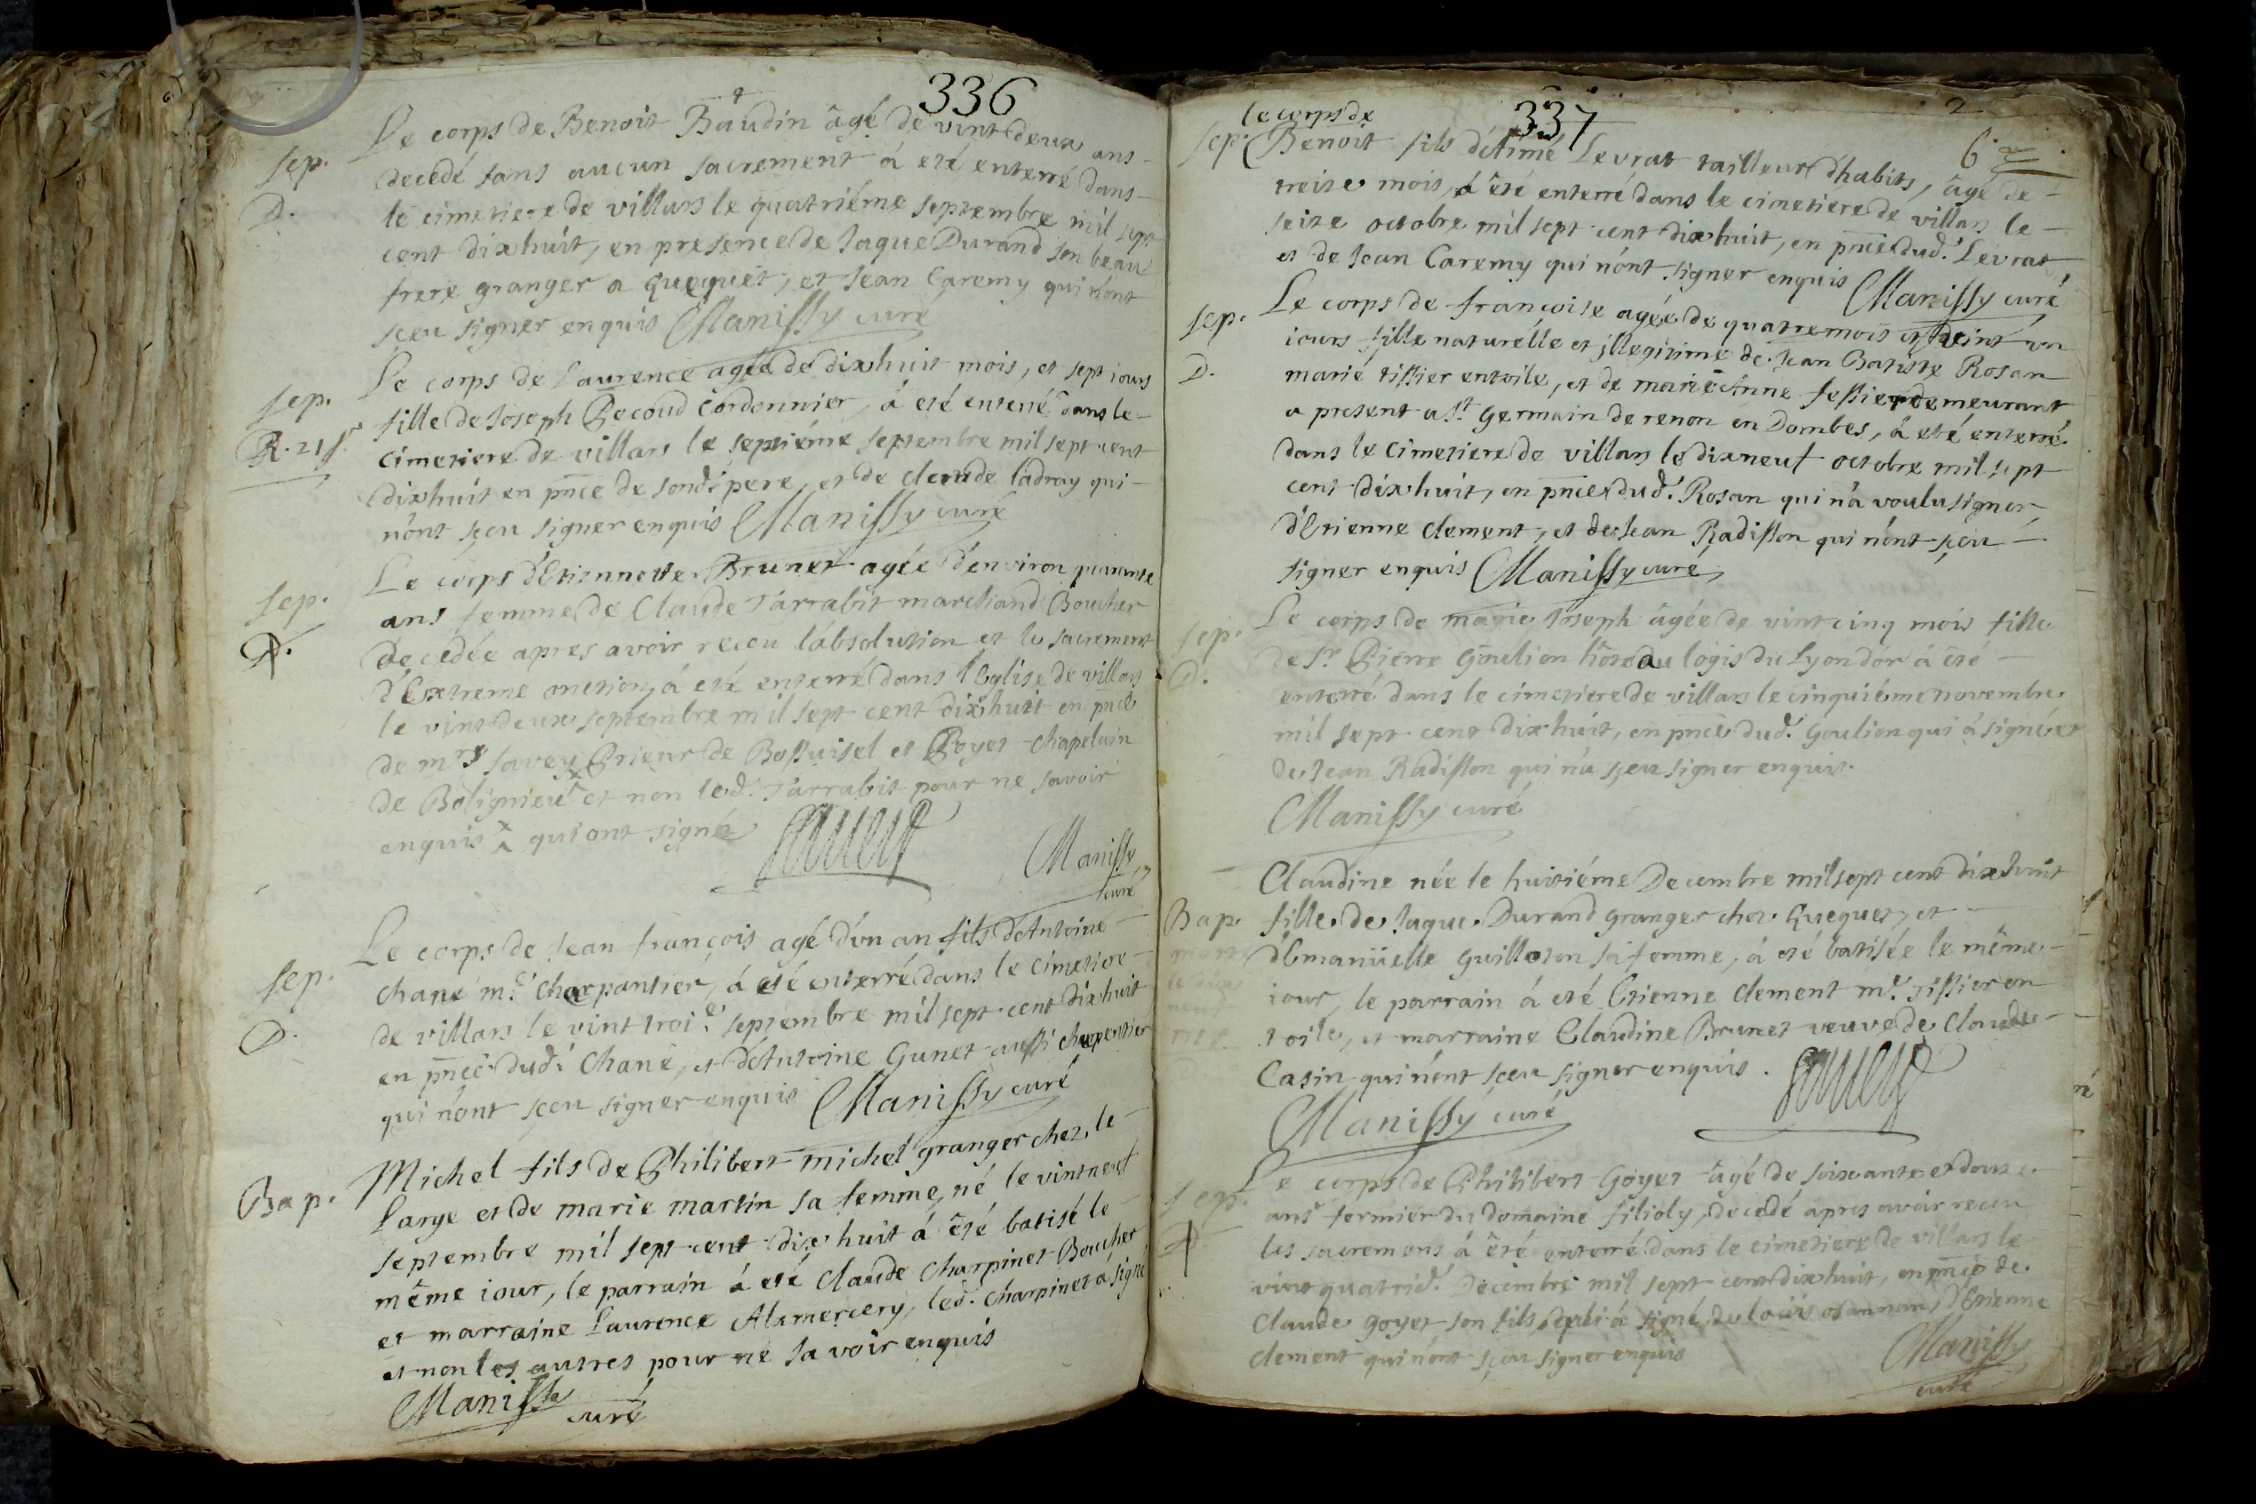 336
Le corps de Benoit Baudin âgé de vint deux ans
sep. decedé sans aucun sacrement á eté enterré dans
D. le cimetiere de villars le quatriéme septembre mil sept
cent dixhuit, en presence de Jaque Durand son beau
frere granger a Quequet, et Jean Caremy qui n'ont
sçeu signer enquis Manissy curé
Le corps de Laurence agée de dixhuit mois, et sept iours
sep. fille de Joseph Recoud Cordonnier, á eté enterré dans le
R. 21 s. Cimetiere de villars le septiéme septembre mil sept cent
dixhuit en pnce de sond. pere, et de claude ladray qui
n'ont sçeu signer enquis Manissy curé
Le corps d'Etiennette Brunet agée d'environ quarante
sep. ans femme de Claude Tarrabit marchand Boucher
D. decedée apres avoir reçeu l'absolution et le sacrement
d'Extreme onction, á eté enterré dans l'Eglise de villars
le vint deux septembre mil sept cent dixhuit en pnce
de mrs savey Prieur de Bossuisel et Poyet chapelain
de Bolignieux et non led. Tarrabit pour ne savoir
enquis x qui ont signé savey Manissy
curé
Le corps de Jean françois agé d'un an fils d'Antoine
sep. Chane me. Charpantier, á eté enterré dans le cimetiere
D. de villars le vint troie. septembre mil sept cent dixhuit
en pnce dud. Chane, et d'Antoine Gunet aussi charpentier
qui n'ont sçeu signer enquis Manissy curé
Michel fils de Philibert michel granger chez le
Bap. Large et de marie martin sa femme, né le vintneuf
septembre mil sept cent dix huit á êté batisé le
même iour, le parrain á eté Claude Charpinet Boucher
et marraine Laurence Alamercery, led. charpinet á signé
et non les autres pour ne savoir enquis
Manissy curé
337
2
6
le corps de
sep. Benoit fils d'etimé Levrat tailleur d'habits, âgé de
treise mois, á êté enterré dans le cimetiere de villars le
seize octobre mil sept cent dixhuit, en pnce dud. Levrat
et de Jean Caremy qui n'ont signer enquis Manissy curé
sep. Le corps de françoise agée de quatre mois et vint un
iours fille naturélle et jllegitime de Jean Batiste Rosan
D. marié tissier entoile, et de marie Anne Tessier demeurant
a present a St. Germain de renon en Dombes, á eté enterré
dans le cimetiere de villars le dixneuf octobre mil sept
cent dixhuit, en pnce dud. Rosan qui n'a voulu signer,
d'Etienne clement, et de Jean Radisson qui n'ont sçeu
signer enquis Manissy curé
Le corps de marie Joseph âgée de vintcinq mois fille
sep. de Sr. Pierre Goulion hôte du logis du Lyon d'or á eté
D. enterré dans le cimetiere de villars le cinquiéme novembre
mil sept cent dixhuit, en pnce dud. Goulion qui á signé et
de Jean Radisson qui n'a sçeu signer enquis.
Manissy curé
Claudine née le huitiéme Decembre mil sept cent dixhuit
Bap. fille de Jaque Durand granger chez Quequet, et
d'Emanüelle Guilloton sa femme, á eté batisée le même
iour, le parrain á eté Etienne clement me. Tissier en
toile, et marraine Claudine Brunet veuve de Claude
Casin qui n'ont sçeu signer enquis. savey
Manissy curé
Le corps de Philibert Goyet âgé de soixante et douze
sep. ans fermier du domaine filioly, decedé apres avoir reçeu
les sacremens á êté enterré dans le cimetiere de villars le
vint quatrie. Decembre mil sept cent dixhuit, en pnce de
Claude goyet son fils qui á signé, d'Etienne
clement qui n'ont sçeu signer enquis Manissy
curé